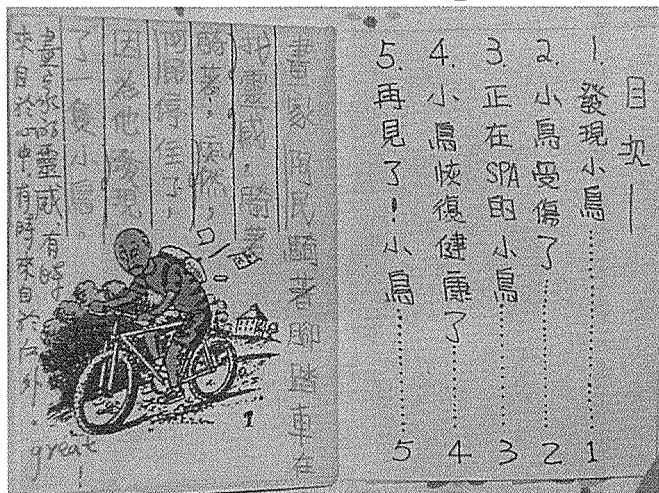 目次—
1. 發現小鳥………1
2. 小鳥受傷了………2
3. 正在SPA的小鳥………3
4. 小鳥恢復健康了………4
5. 再見了！小鳥………5
畫家阿民騎著腳踏車在
找靈感，騎著
騎著，突然，
阿民停住了，
因為他發現
了一隻小鳥。
畫家的靈感有時
來自於心中，有時來自於戶外。
great!
1